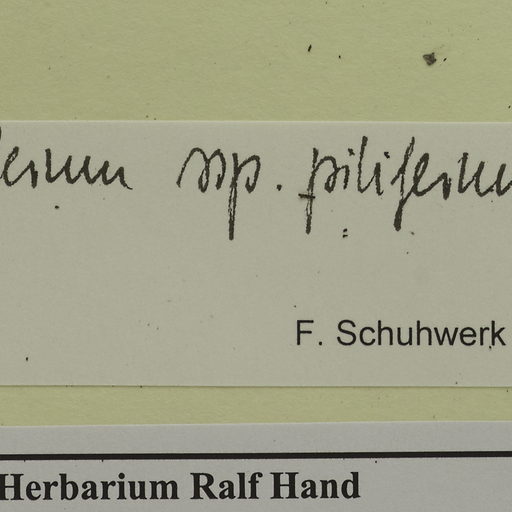 ferum ssp. piliferum
F. Schuhwerk
Herbarium Ralf Hand